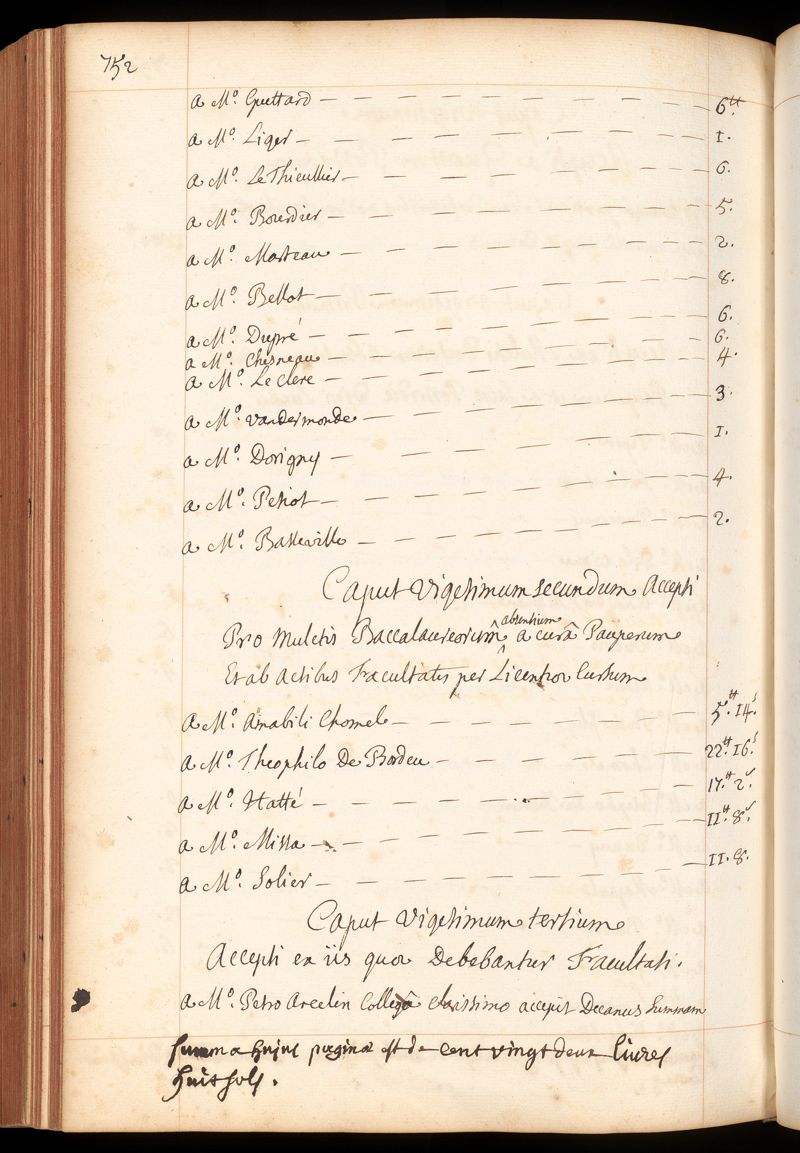 752
a M.º Guettard — 6.tt
a M.º Liger — 1.
a M.º LeThieullier — 6.
a M.º Bourdier — 5.
a M.º Marteau — 2.
a M.º Bellot — 8.
a M.º Dupré — 6.
a M.º Chesneau — 6.
a M.º Le Clerc — 4.
a M.º Vandermonde — 3.
a M.º Dorigny — 1.
a M.º Petiot — 4.
a M.º Basseville — 2.
Caput Vigesimum secundum Accepti
Pro Mulctis Baccalaureorum absentium a curâ Pauperum
Et ab actibus Facultatis per Licentiae Cursum
a M.º Amabili Chomel — 5.tt 14.s
a M.º Theophilo De Bordeu — 22.tt 16.s
a M.º Hatté — 17.tt 2.s
a M.º Missa — 11.tt 8.s
a M.º Solier — 11. 8.
Caput Vigesimum tertium
Accepti ex iis quae Debebantur Facultati.
a M.º Petro Arcelin Collegâ clarissimo accepit Decanus Summam
Summa hujus paginae est de cent vingt deux livres
huit sols.